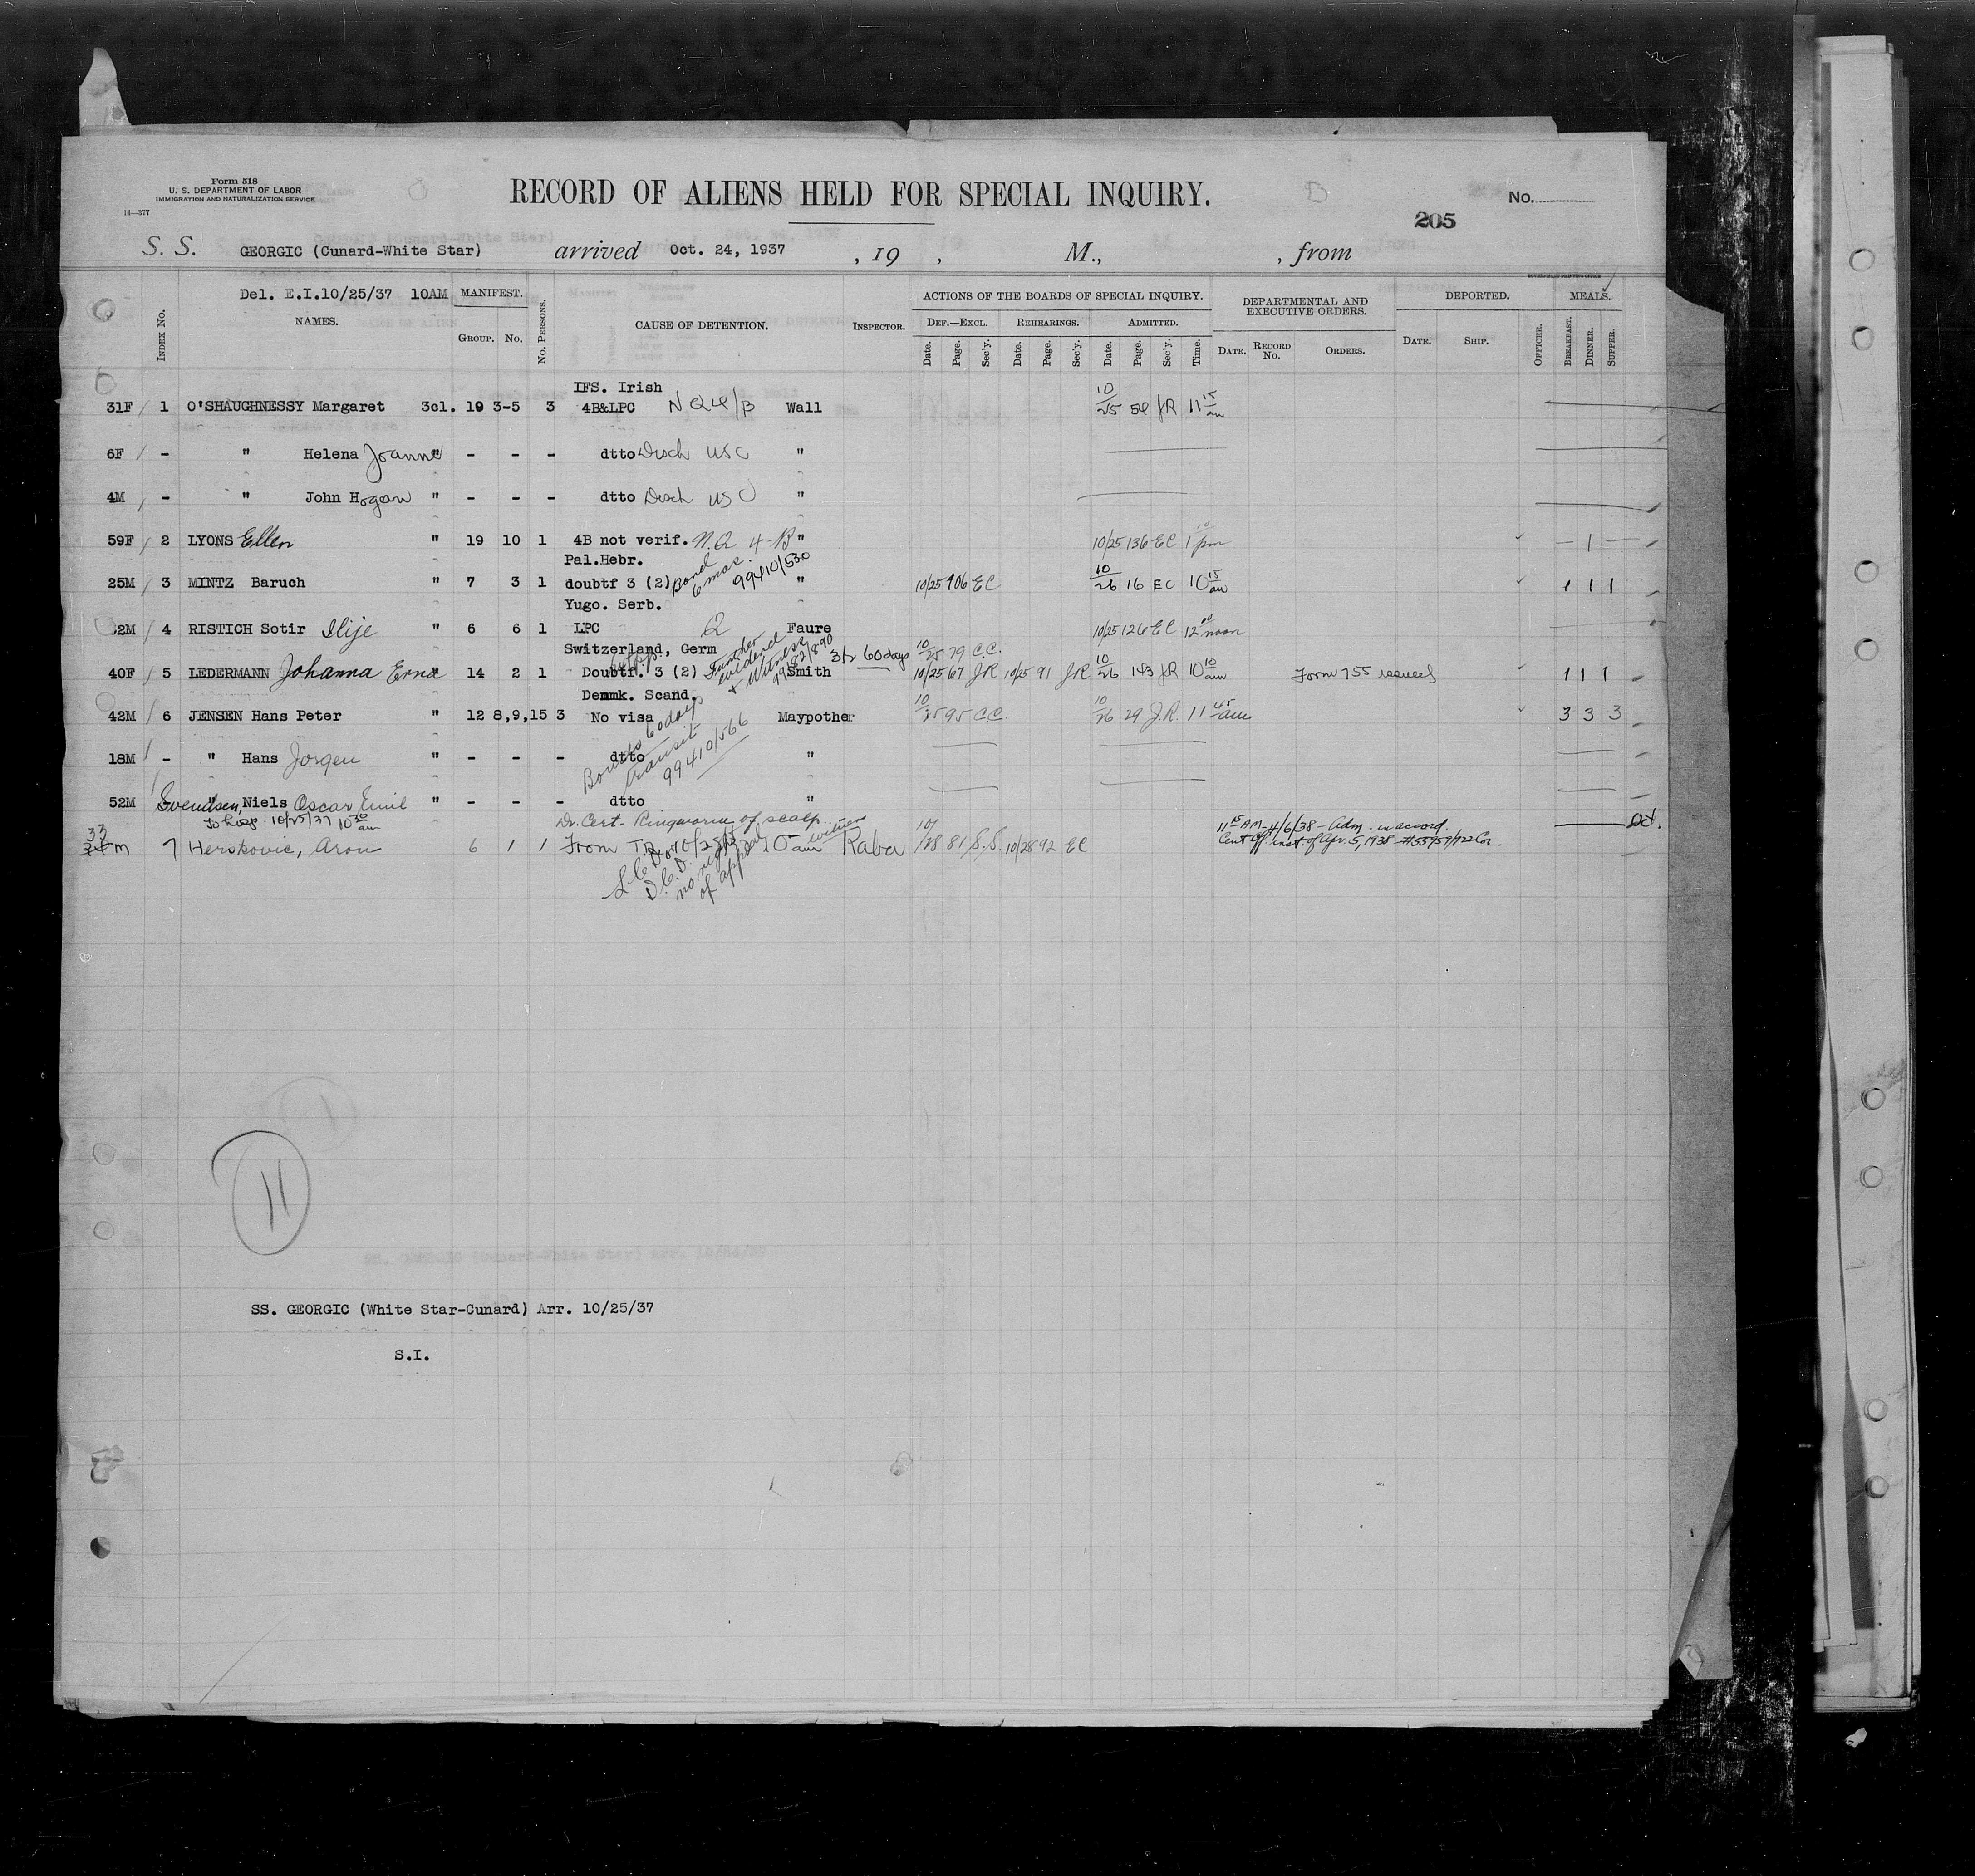 Form 518
U. S. DEPARTMENT OF LABOR
IMMIGRATION AND NATURALIZATION SERVICE
14—377
RECORD OF ALIENS HELD FOR SPECIAL INQUIRY.
No.
205
S. S. GEORGIC (Cunard-White Star) arrived Oct. 24, 1937 , 19 , M., , from
Del. E.I.10/25/37 10AM
INDEX No. NAMES. MANIFEST. GROUP. No. No. PERSONS. CAUSE OF DETENTION. INSPECTOR. ACTIONS OF THE BOARDS OF SPECIAL INQUIRY. DEF.—EXCL. Date. Page. Sec'y. REHEARINGS. Date. Page. Sec'y. ADMITTED. Date. Page. Sec'y. Time. DEPARTMENTAL AND EXECUTIVE ORDERS. DATE. RECORD No. ORDERS. DEPORTED. DATE. SHIP. OFFICER. MEALS. BREAKFAST. DINNER. SUPPER.
IFS. Irish
31F 1 O'SHAUGHNESSY Margaret 3cl. 19 3-5 3 4B&LPC Wall 10/25 54 JR 11 15 am
6F - " Helena Joanne " - - - dtto Disch USC "
4M - " John Hogan " - - - dtto Disch USC "
59F 2 LYONS Ellen " 19 10 1 4B not verif. N.Q. 4-B " 10/25 136 EC 1 pm
Pal.Hebr.
25M 3 MINTZ Baruch " 7 3 1 doubtf 3 (2) Bond 6 mos. 99410/530 " 10/25 106 EC 10/26 16 EC 10 15 am 1 1 1
Yugo. Serb.
2M 4 RISTICH Sotir Ilije " 6 6 1 LPC Q Faure 10/25 126 EC 12 noon
Switzerland, Germ
40F 5 LEDERMANN Johanna Erna " 14 2 1 Doubtf. 3 (2) Further evidence & Witness Smith 60 days 10/25 79 C.C. 10/25 67 JR 10/25 91 JR 10/26 143 JR 10 10 am Form 755 issued 1 1 1
Denmk. Scand.
42M 6 JENSEN Hans Peter " 12 8,9,15 3 No visa Maypother 10/25 95 C.C. 10/26 29 J.R. 11 45 am 3 3 3
18M - " Hans Jorgen " - - - dtto 60 days transit 99410/566 "
52M Svendsen, Niels Oscar Emil " - - - dtto "
To Hosp 10/25/37 10 30 am Dr. Cert- Ringworm of scalp.
33 M 7 Herskovic, Aron 6 1 1 From 10 am witness Raba 10/28 81 S.S. 10/28 92 EC 11 15 AM-4/6/38- Adm. in accord.
Cent off inst. of Apr. 5, 1938
no right of appeal
11
SS. GEORGIC (White Star-Cunard) Arr. 10/25/37
S.I.